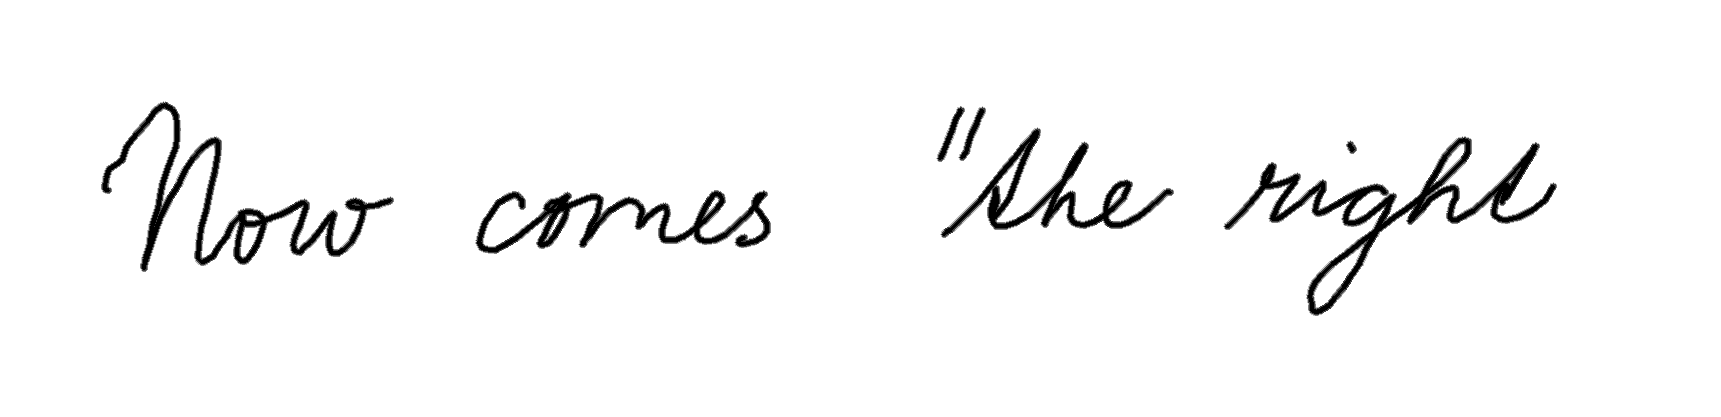 Now comes "the right